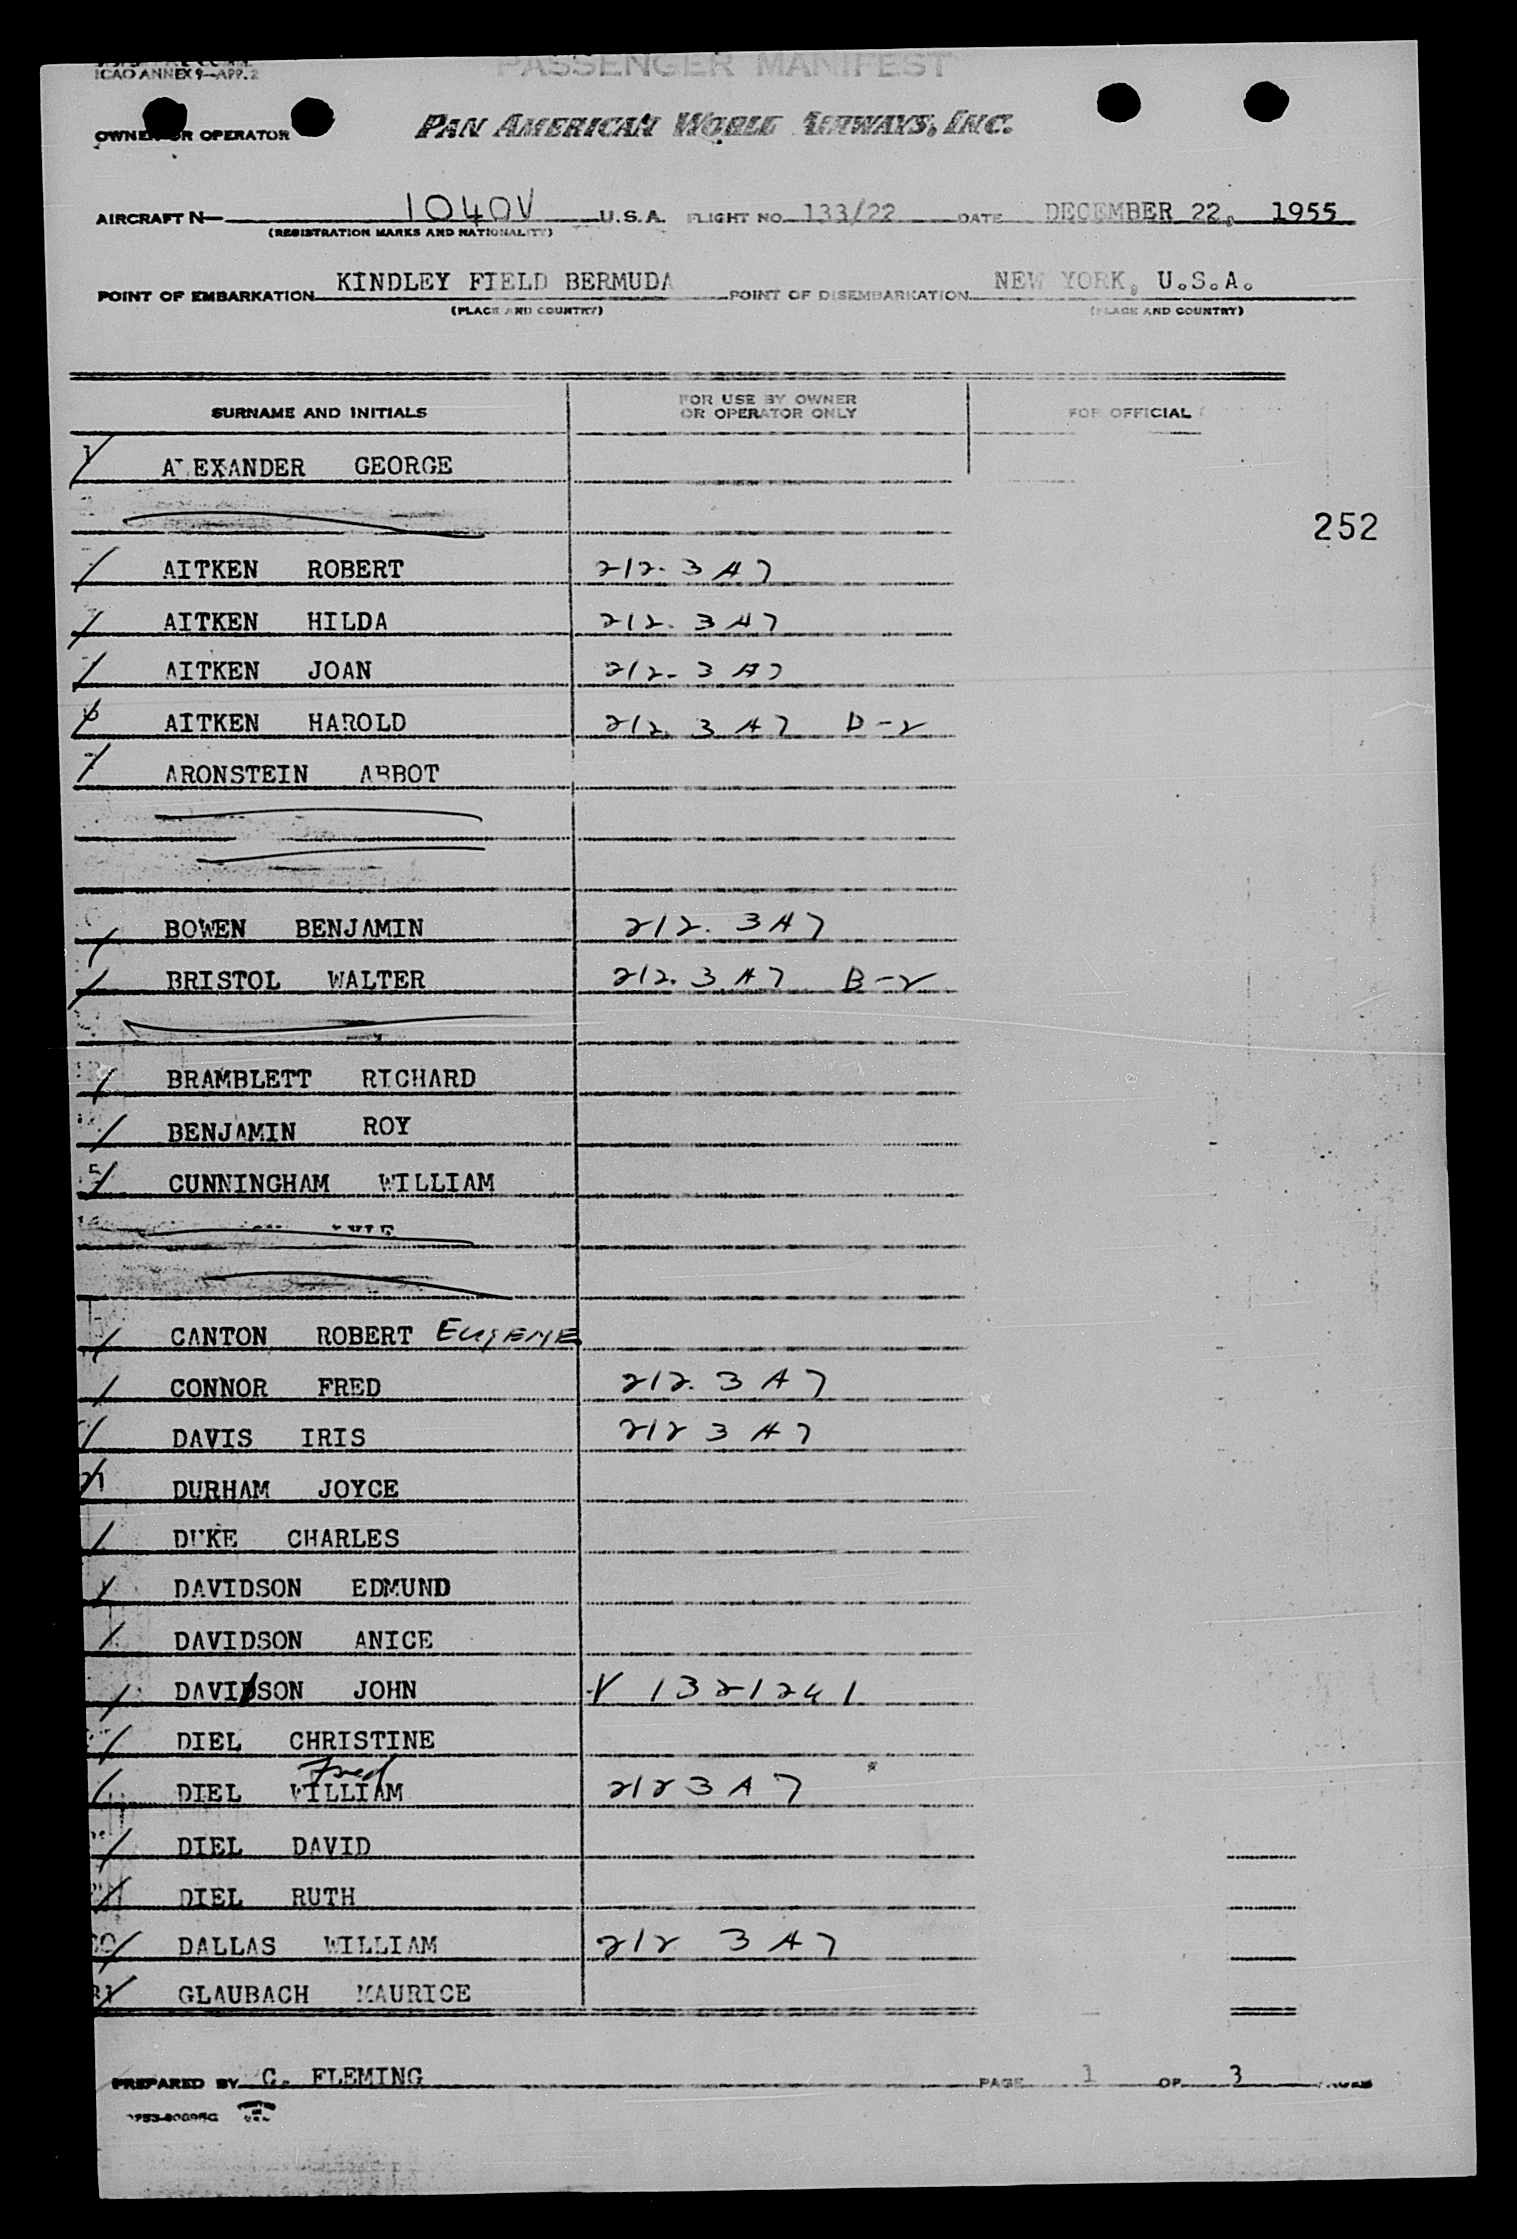 ICAO ANNEX 9—APP. 2
PASSENGER MANIFEST
OWNER OR OPERATOR PAN AMERICAN WORLD AIRWAYS, INC.
AIRCRAFT N— 1040V U.S.A. FLIGHT NO. 133/22 DATE DECEMBER 22, 1955
(REGISTRATION MARKS AND NATIONALITY)
POINT OF EMBARKATION KINDLEY FIELD BERMUDA POINT OF DISEMBARKATION NEW YORK, U.S.A.
(PLACE AND COUNTRY) (PLACE AND COUNTRY)
SURNAME AND INITIALS FOR USE BY OWNER OR OPERATOR ONLY FOR OFFICIAL
1 ALEXANDER GEORGE
252
AITKEN ROBERT 212.3A7
AITKEN HILDA 212.3A7
AITKEN JOAN 212.3A7
6 AITKEN HAROLD 212.3A7 B-2
7 ARONSTEIN ABBOT
BOWEN BENJAMIN 212.3A7
BRISTOL WALTER 212.3A7 B-2
BRAMBLETT RICHARD
BENJAMIN ROY
15 CUNNINGHAM WILLIAM
CANTON ROBERT EUGENE
CONNOR FRED 212.3A7
DAVIS IRIS 212 3A7
21 DURHAM JOYCE
DUKE CHARLES
DAVIDSON EDMUND
DAVIDSON ANICE
DAVIDSON JOHN V 1321241
DIEL CHRISTINE
Fred
DIEL WILLIAM 212 3A7
DIEL DAVID
DIEL RUTH
30 DALLAS WILLIAM 212 3A7
31 GLAUBACH MAURICE
PREPARED BY C. FLEMING PAGE 1 OF 3 PAGES